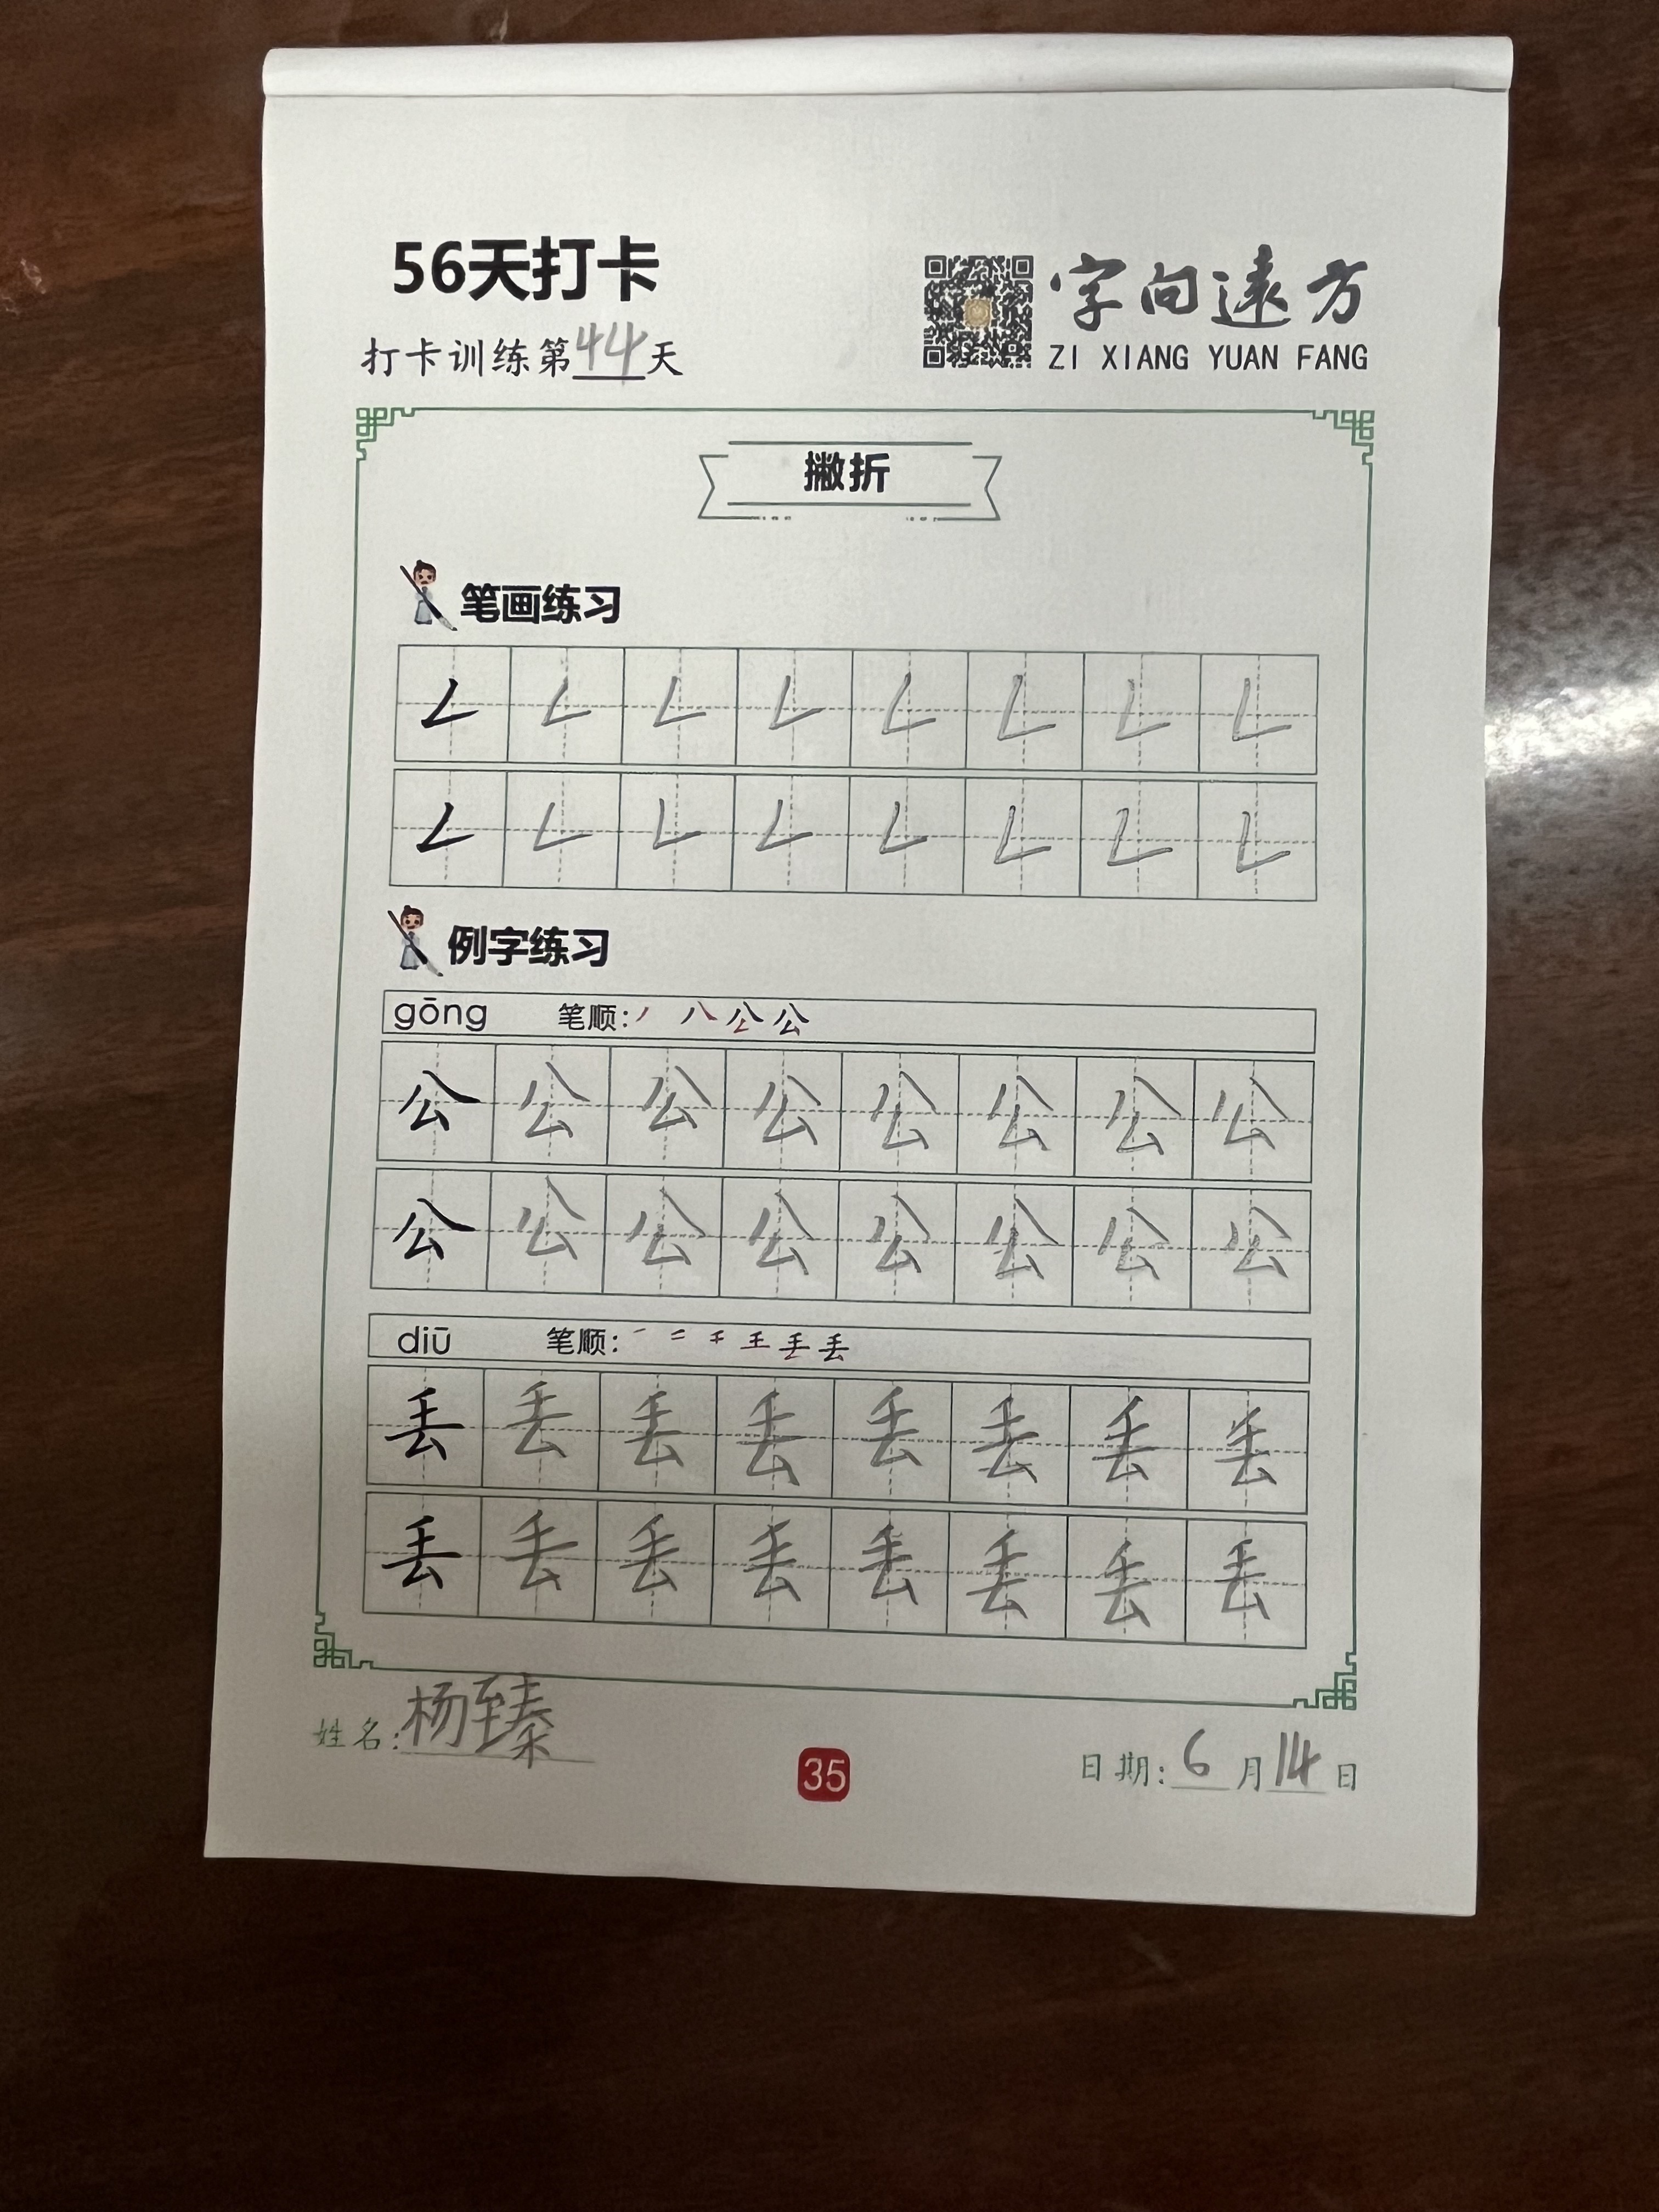 56天打卡
字向遠方
打卡训练第44天
ZI XIANG YUAN FANG
撇折
笔画练习
例字练习
gōng 笔顺:丿 八 公 公
公 公 公 公 公 公 公 公
公 公 公 公 公 公 公 公
diū 笔顺:一 二 千 王 丢 丢
丢 丢 丢 丢 丢 丢 丢 丢
丢 丢 丢 丢 丢 丢 丢 丢
姓名:杨臻
35
日期:6月14日